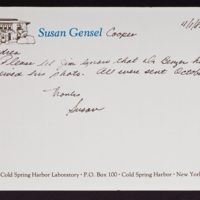 Susan Gensel Cooper
Please let Jim know that Dr. has
his shots. All were sent October
Thanks
Susan
Cold Spring Harbor Laboratory • P.O. Box 100 • Cold Spring Harbor • New York